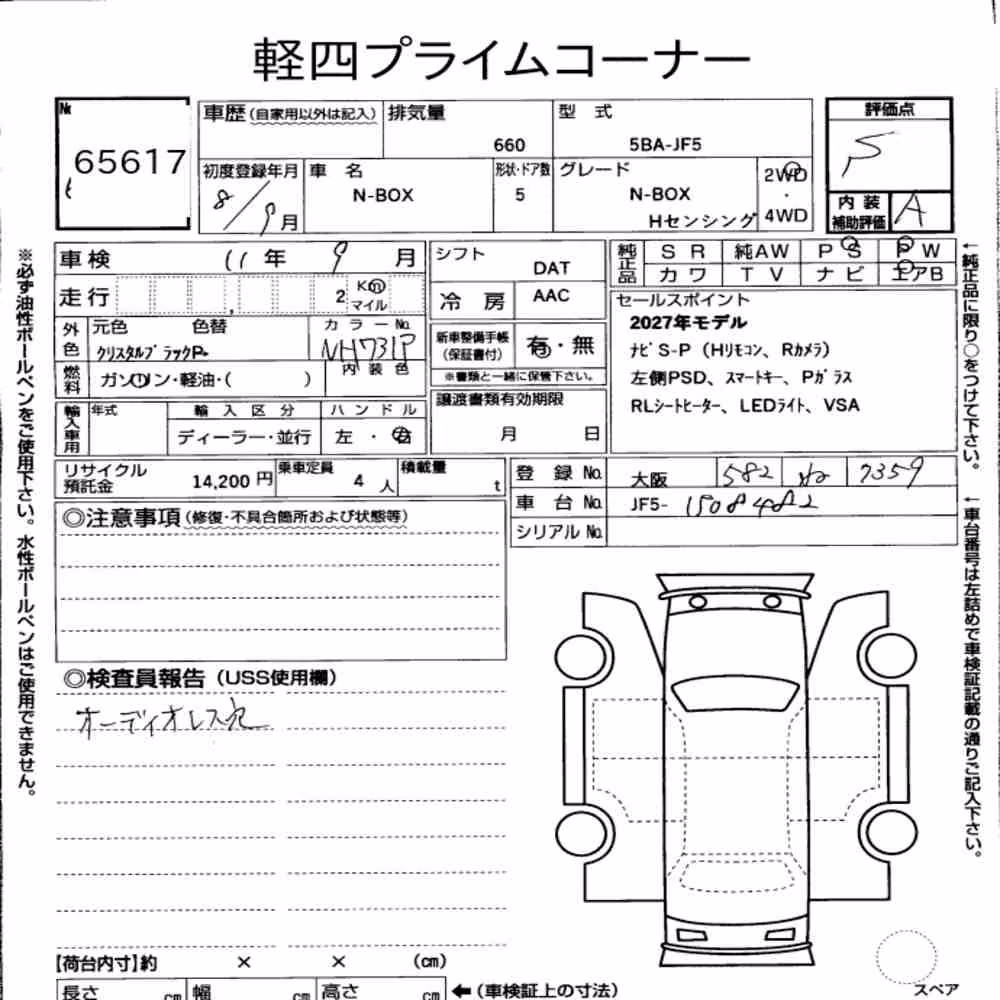 軽四プライムコーナー
№ 65617
車歴(自家用以外は記入) 排気量 660 型式 5BA-JF5
初度登録年月 8/9月 車名 N-BOX 形状・ドア数 5 グレード N-BOX Hセンシング 2WD・4WD
評価点
内装補助評価 A
車検 11年 9月
走行 , 2 Km マイル
外色 元色 クリスタルブラックP 色替 カラーNo. NH731P
内装色
燃料 ガソリン・軽油・( )
輸入車用 年式 輸入区分 ディーラー・並行 ハンドル 左・右
リサイクル預託金 14,200円 乗車定員 4人 積載量 t
シフト DAT
冷房 AAC
新車整備手帳(保証書付) 有・無
※書類と一緒に保管下さい。
譲渡書類有効期限
月 日
純正品 SR 純AW PS PW
カワ TV ナビ エアB
セールスポイント
2027年モデル
ナビS-P (Hリモコン、Rカメラ)
左側PSD、スマートキー、Pガラス
RLシートヒーター、LEDライト、VSA
登録No. 大阪 582 ね 7359
車台No. JF5- 1508482
シリアルNo.
◎注意事項(修復・不具合箇所および状態等)
◎検査員報告(USS使用欄)
オーディオレス穴
【荷台内寸】約 × × (cm)
長さ cm 幅 cm 高さ cm ←(車検証上の寸法)
スペア
※必ず油性ボールペンをご使用下さい。水性ボールペンはご使用できません。
←純正品に限り○をつけて下さい。
←車台番号は左詰めで車検証記載の通りご記入下さい。